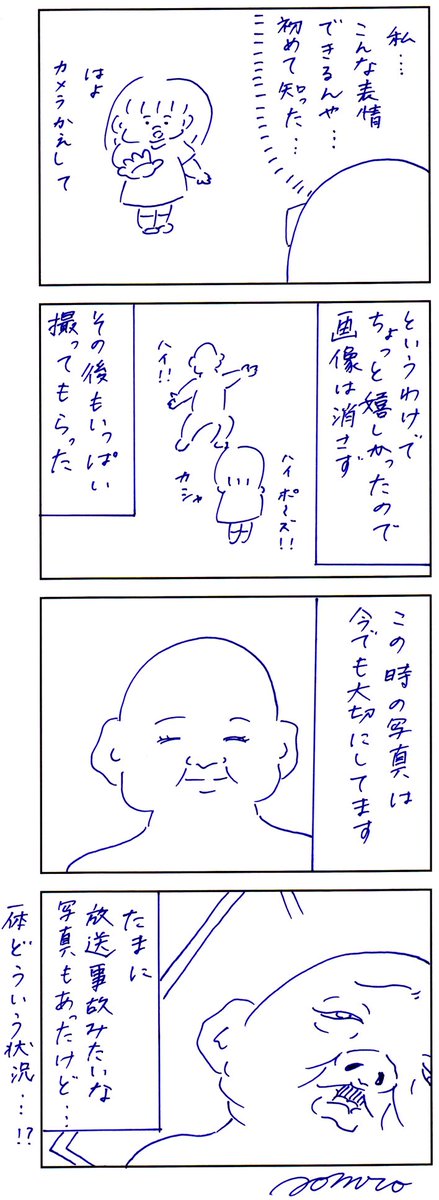 私……
こんな表情
できるんや…
初めて知った…
はよ
カメラかえして
というわけで
ちょっと嬉しかったので
画像は消さず
ハイ!!
ハイ ポーズ!!
カシャ
その後もいっぱい
撮ってもらった
この時の写真は
今でも大切にしてます
たまに
放送事故みたいな
写真もあったけど…
一体どういう状況…!?